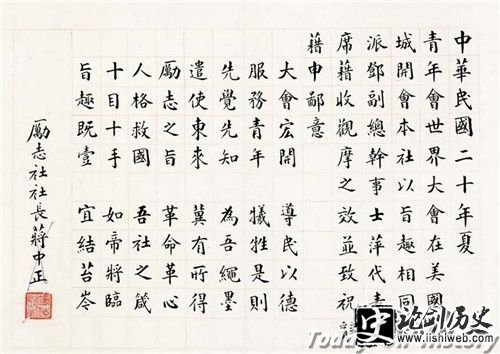 中華民國二十年夏
青年會世界大會在美國
城開會本社以旨趣相同
派鄧副總幹事士萍代表
席藉收觀摩之效並致祝
藉申鄙意
大會宏開 導民以德
服務青年 犧牲是則
先覺先知 為吾繩墨
遣使東來 冀有所得
勵志之旨 革命革心
人格救國 吾社之箴
十目十手 如帝將臨
旨趣既壹 宜結苔岑
勵志社社長蔣中正
史论剑历史
www.lishiweb.com